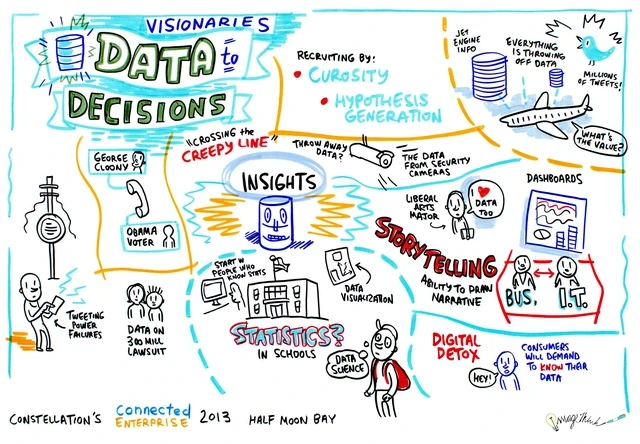 VISIONARIES
DATA to
DECISIONS
RECRUITING BY:
• CUROSITY
• HYPOTHESIS
GENERATION
JET
ENGINE
INFO
EVERYTHING
IS THROWING
OFF DATA
MILLIONS
OF TWEETS!
WHAT'S
THE VALUE?
GEORGE
CLOONY
OBAMA
VOTER
"CROSSING the
CREEPY LINE"
THROW AWAY
DATA?
THE DATA
FROM SECURITY
CAMERAS
INSIGHTS
LIBERAL
ARTS
MAJOR
I ♥
DATA
TOO
DASHBOARDS
STORYTELLING
ABILITY TO DRAW
NARRATIVE
BUS.
I.T.
TWEETING
POWER
FAILURES
DATA ON
300 MILL
LAWSUIT
START W/
PEOPLE WHO
KNOW STATS
DATA
VISUALIZATION
STATISTICS?
IN SCHOOLS
DATA
SCIENCE
DIGITAL
DETOX
HEY!
CONSUMERS
WILL DEMAND
TO KNOW THEIR
DATA
CONSTELLATION'S Connected ENTERPRISE 2013 HALF MOON BAY
ImageThink